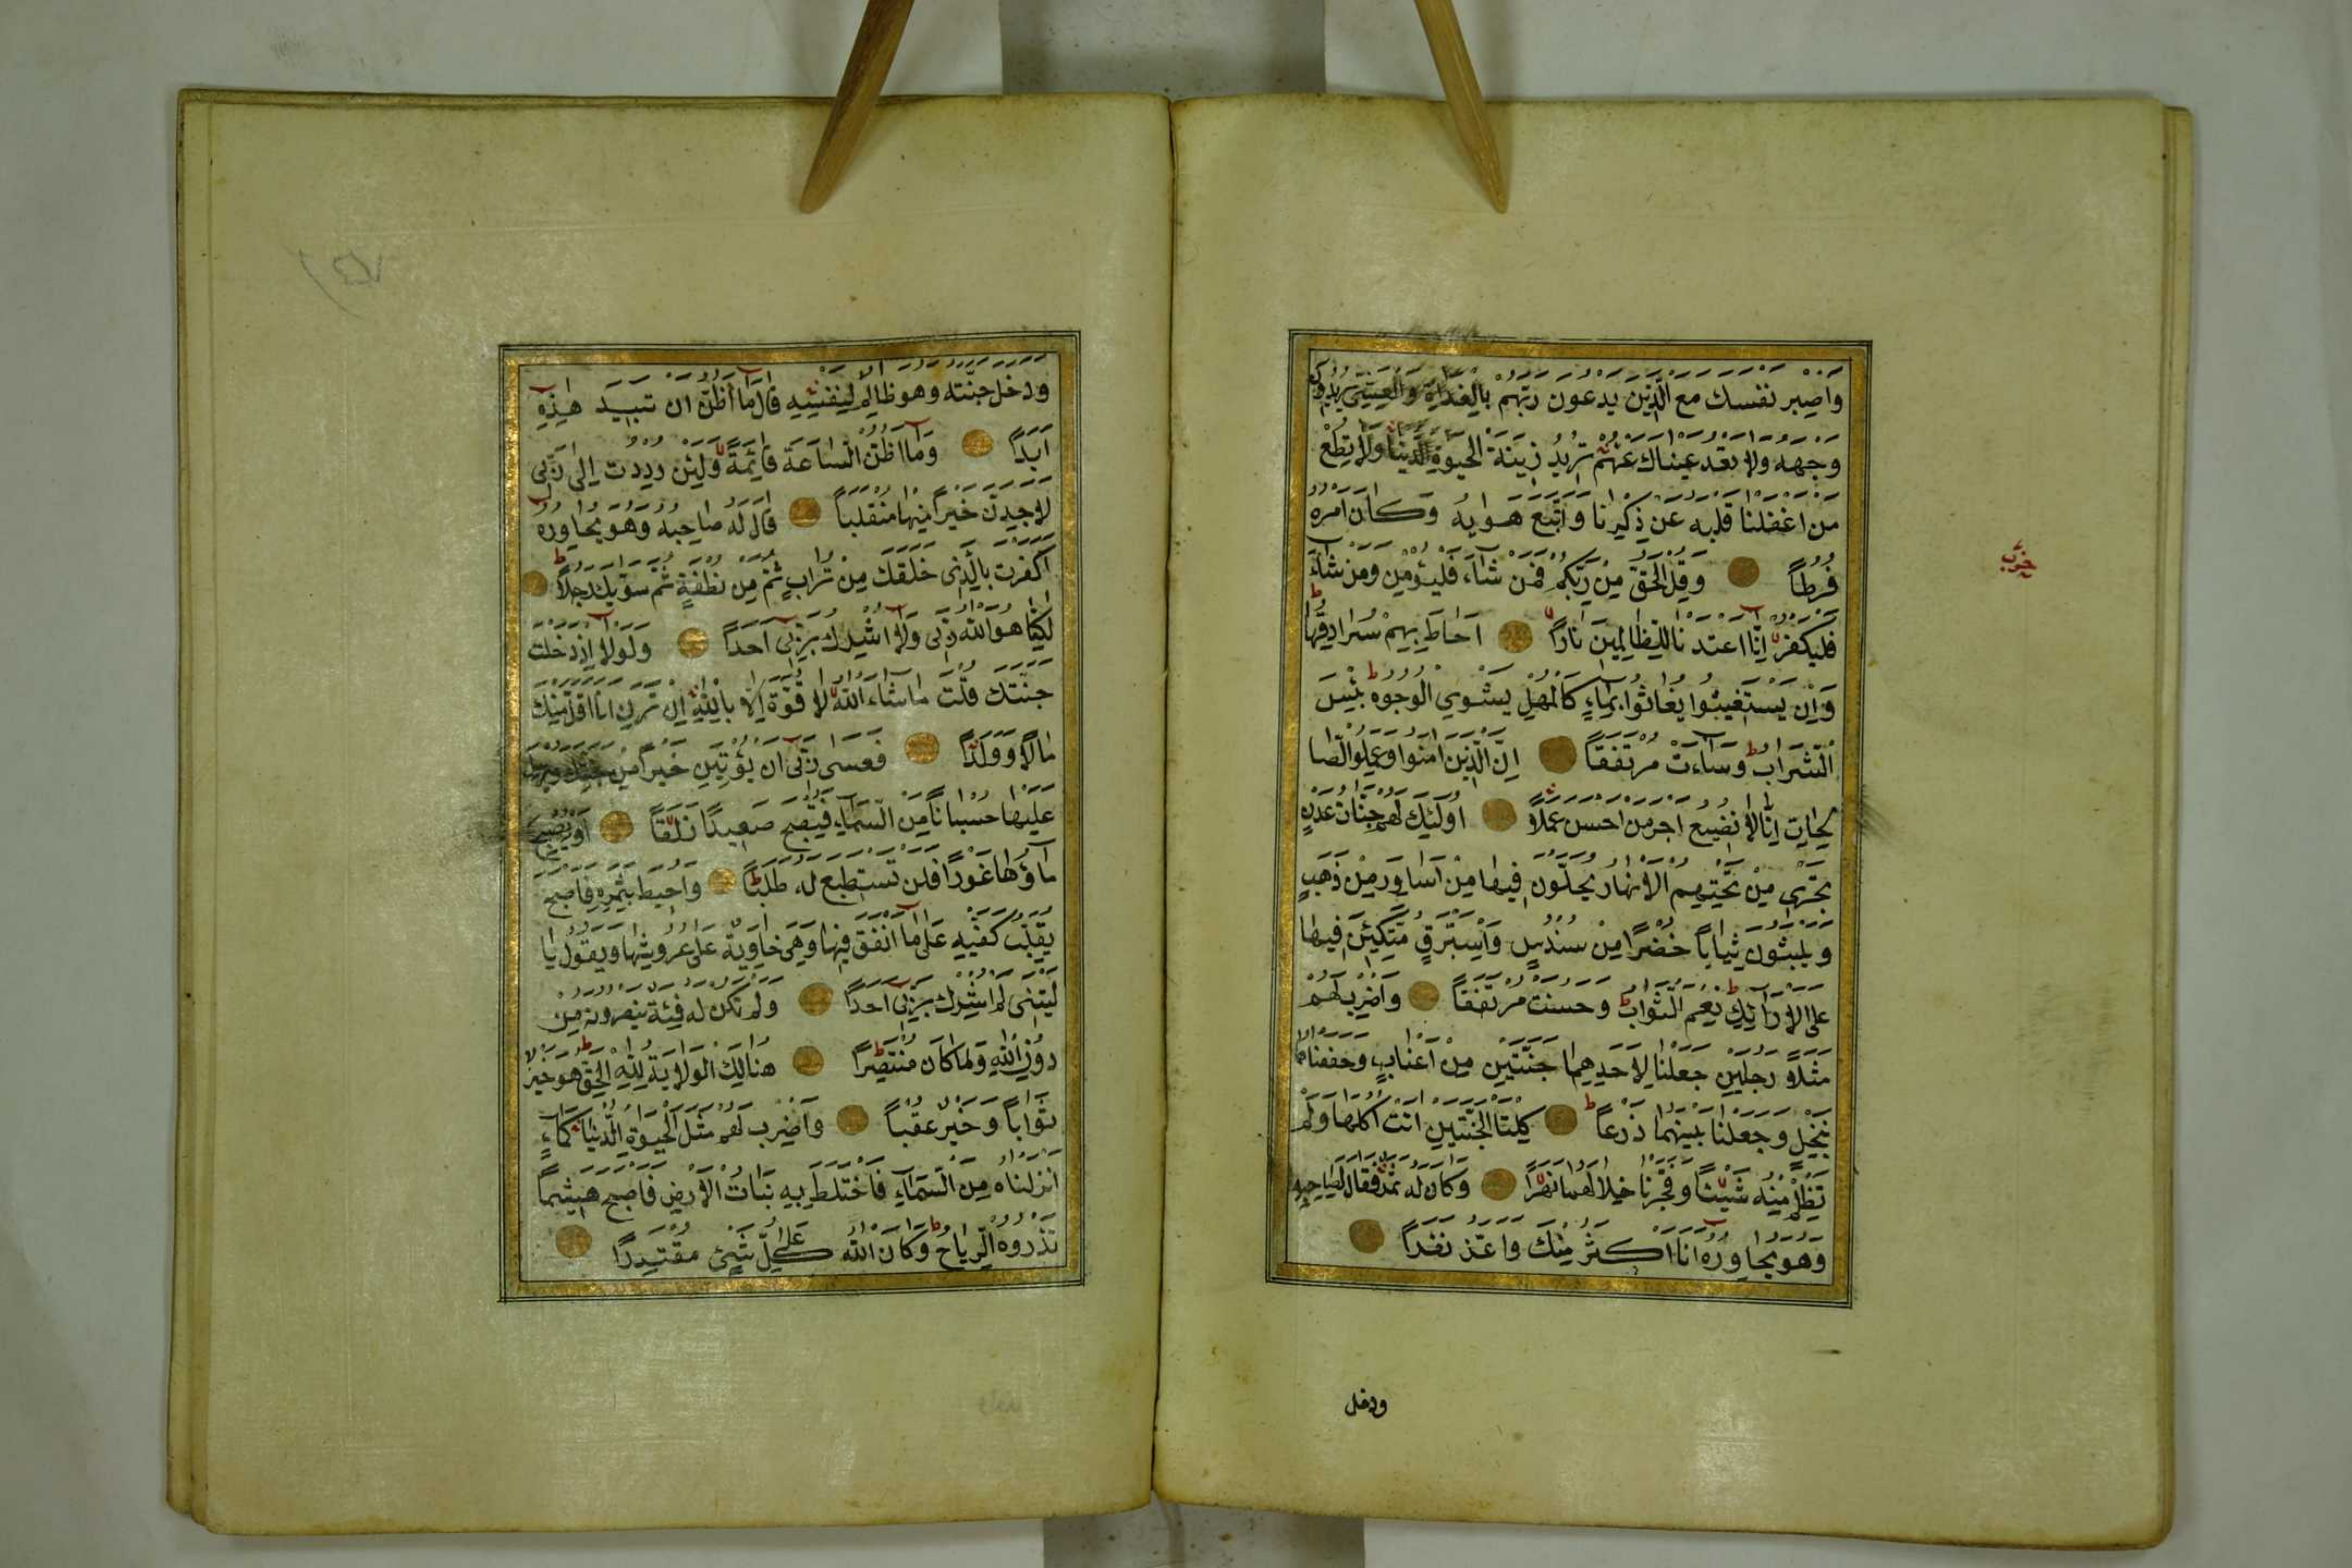 واصبر نفسك مع الذين يدعون ربهم بالغداة والعشي يريدون
وجهه ولا تعد عيناك عنهم تريد زينة الحيوة الدنيا ولا تطع
من اغفلنا قلبه عن ذكرنا واتبع هويه وكان امره
فرطا وقل الحق من ربكم فمن شاء فليؤمن ومن شاء
فليكفر انا اعتدنا للظالمين نارا احاط بهم سرادقها
وان يستغيثوا يغاثوا بماء كالمهل يشوي الوجوه بئس
الشراب وساءت مرتفقا ان الذين امنوا وعملوا الصا
لحات انا لا نضيع اجر من احسن عملا اولئك لهم جنات عدن
تجري من تحتهم الانهار يحلون فيها من اساور من ذهب
ويلبسون ثيابا خضرا من سندس واستبرق متكئين فيها
على الارائك نعم الثواب وحسنت مرتفقا واضرب لهم
مثلا رجلين جعلنا لاحدهما جنتين من اعناب وحففناهما
بنخل وجعلنا بينهما زرعا كلتا الجنتين اتت اكلها ولم
تظلم منه شيئا وفجرنا خلالهما نهرا وكان له ثمر فقال لصاحبه
وهو يحاوره انا اكثر منك مالا واعز نفرا
ودخل
حزب
ودخل جنته وهو ظالم لنفسه قال ما اظن ان تبيد هذه
ابدا وما اظن الساعة قائمة ولئن رددت الى ربي
لاجدن خيرا منها منقلبا قال له صاحبه وهو يحاوره
اكفرت بالذي خلقك من تراب ثم من نطفة ثم سويك رجلا
لكنا هو الله ربي ولا اشرك بربي احدا ولولا اذ دخلت
جنتك قلت ما شاء الله لا قوة الا بالله ان ترن انا اقل منك
مالا وولدا فعسى ربي ان يؤتين خيرا من جنتك ويرسل
عليها حسبانا من السماء فتصبح صعيدا زلقا او يصبح
ماؤها غورا فلن تستطيع له طلبا واحيط بثمره فاصبح
يقلب كفيه على ما انفق فيها وهي خاوية على عروشها ويقول يا
ليتني لم اشرك بربي احدا ولم تكن له فئة ينصرونه من
دون الله وما كان منتصرا هنالك الولاية لله الحق هو خير
ثوابا وخير عقبا واضرب لهم مثل الحيوة الدنيا كماء
انزلناه من السماء فاختلط به نبات الارض فاصبح هشيما
تذروه الرياح وكان الله على كل شيئ مقتدرا